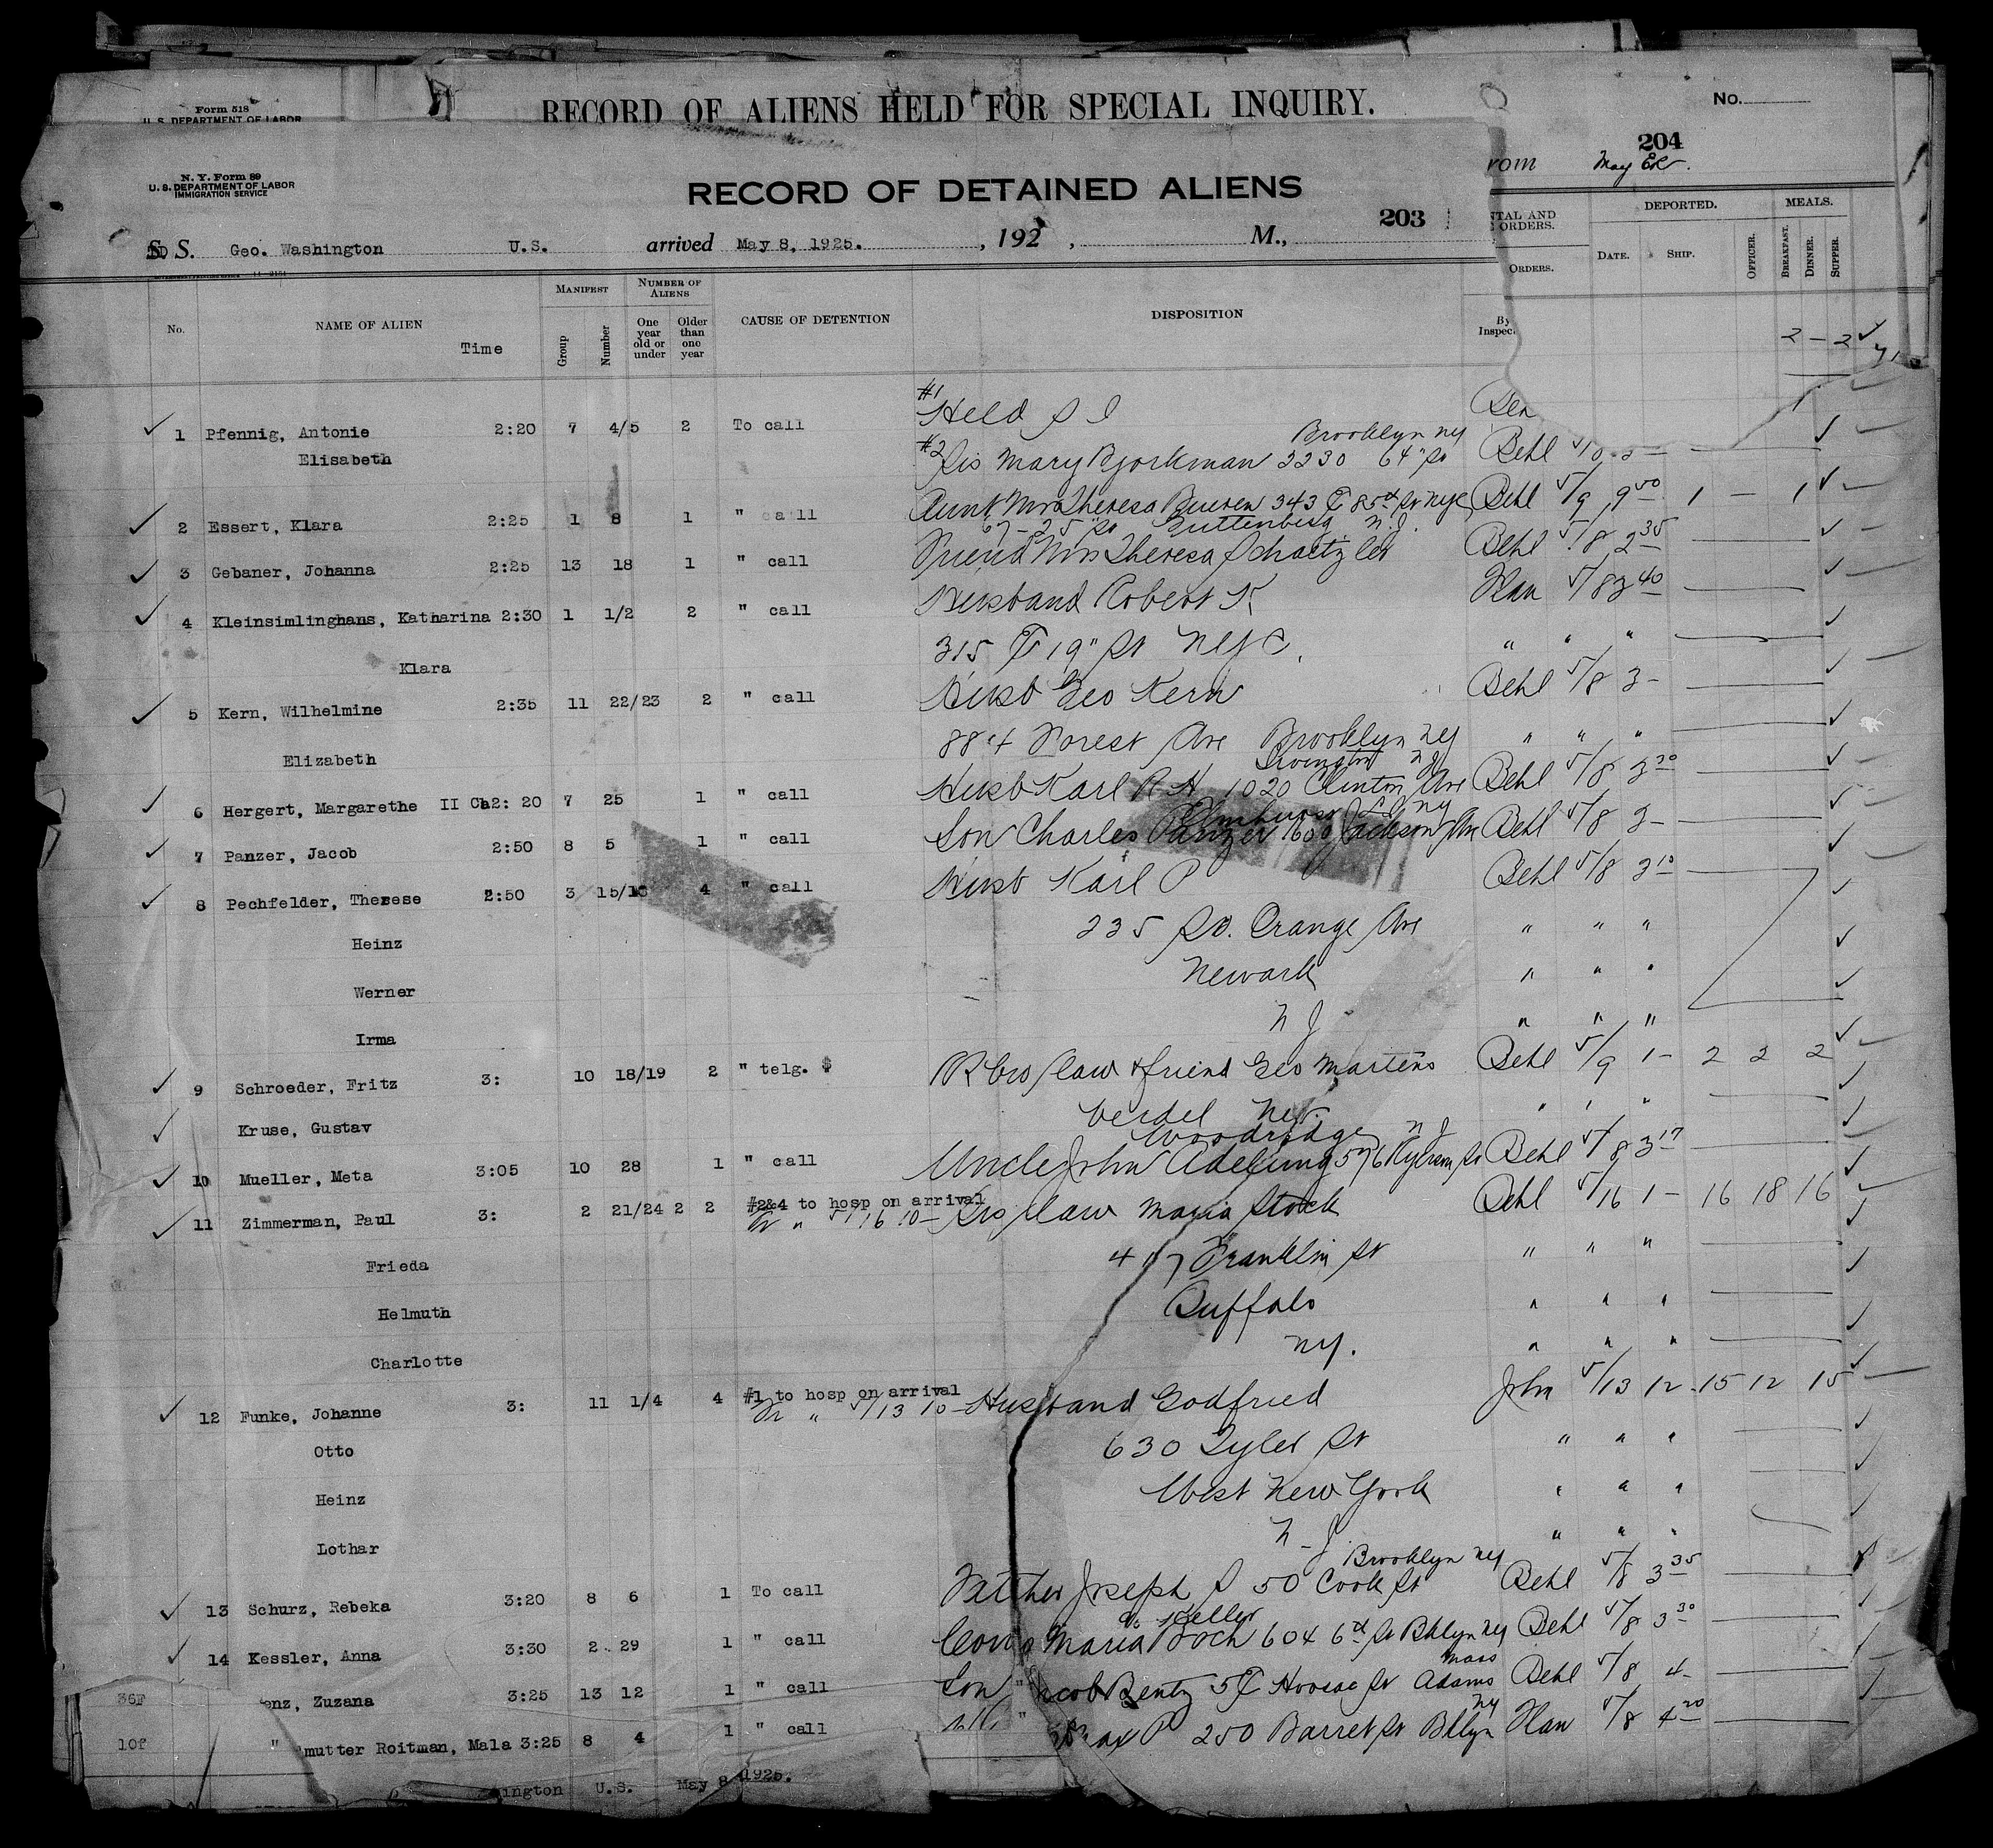 Form 518
U. S. DEPARTMENT OF LABOR
RECORD OF ALIENS HELD FOR SPECIAL INQUIRY.
No.
204
rom May
N. Y. Form 89
U. S. DEPARTMENT OF LABOR
IMMIGRATION SERVICE
RECORD OF DETAINED ALIENS
203
S. S. Geo. Washington U.S. arrived May 8, 1925. , 192 , M.,
NTAL AND ORDERS. DEPORTED. MEALS.
ORDERS. DATE. SHIP. OFFICER. BREAKFAST. DINNER. SUPPER.
No. NAME OF ALIEN Time MANIFEST Group Number NUMBER OF ALIENS One year old or under Older than one year CAUSE OF DETENTION DISPOSITION By Inspec
2 - 2
#1 Held S I
1 Pfennig, Antonie 2:20 7 4/5 2 To call
Brooklyn NY
Elisabeth #2 Sis Mary Bjorkman 2230 64" St Behl
2 Essert, Klara 2:25 1 8 1 " call Aunt Mrs Theresa 343 E 85th St NYC Behl 5/9 9 50 1 - 1
67-25 St Guttenberg N.J.
3 Gebaner, Johanna 2:25 13 18 1 " call Friend Mrs Theresa Schaetzler Behl 5/8 2 35
4 Kleinsimlinghans, Katharina 2:30 1 1/2 2 " call Husband Robert K Han 5/8 3 40
Klara 315 E 19" St NYC. " " "
5 Kern, Wilhelmine 2:35 11 22/23 2 " call Husb Geo Kern Behl 5/8 3-
Elizabeth 884 Forest Ave Brooklyn NY " " "
Irvington NJ
6 Hergert, Margarethe II Ca2: 20 7 25 1 " call Husb Karl R H 1020 Clinton Ave Behl 5/8 3 30
Elmhurst L I NY
7 Panzer, Jacob 2:50 8 5 1 " call Son Charles Panzer 1600 Jackson Ave Behl 5/8 3-
8 Pechfelder, Therese 2:50 3 15/18 4 " call Husb Karl P Behl 5/8 3 10
Heinz 235 So. Orange Ave " " "
Werner Newark " " "
Irma N J " " "
9 Schroeder, Fritz 3: 10 18/19 2 " telg. $ Bro law & friend Geo Martens Behl 5/9 1- 2 2 2
Kruse, Gustav Verdel Neb. " " "
Woodridge N J
10 Mueller, Meta 3:05 10 28 1 " call Uncle John Adelung 576 St Behl 5/8 3 17
11 Zimmerman, Paul 3: 2 21/24 2 2 #2&4 to hosp on arrival Sis law Maria Stock Behl 5/16 1- 16 18 16
Fr " 5/16 10-
Frieda 417 Franklin St " " "
Helmuth Buffalo " " "
Charlotte NY. " " "
12 Funke, Johanne 3: 11 1/4 4 #1 to hosp on arrival Husband Godfried John 5/13 12 15 12 15
Fr " 5/13 10-
Otto 630 Tyler St " " "
Heinz West New York " " "
Lothar N J. " " "
Brooklyn NY
13 Schurz, Rebeka 3:20 8 6 1 To call Father Joseph S 50 Cook St Behl 5/8 3 35
c/o Keller
14 Kessler, Anna 3:30 2 29 1 " call Maria Boch 604 6th St Bklyn NY Behl 5/8 3 30
Mass
36F enz, Zuzana 3:25 13 12 1 " call Son Jacob Bentz 5 E Hoosac St Adams Behl 5/8 4-
NY
10f " mutter Roitman, Mala 3:25 8 4 1 " call Max P 250 Barret St Bklyn Han 5/8 4 20
ington U.S. May 8 1925.